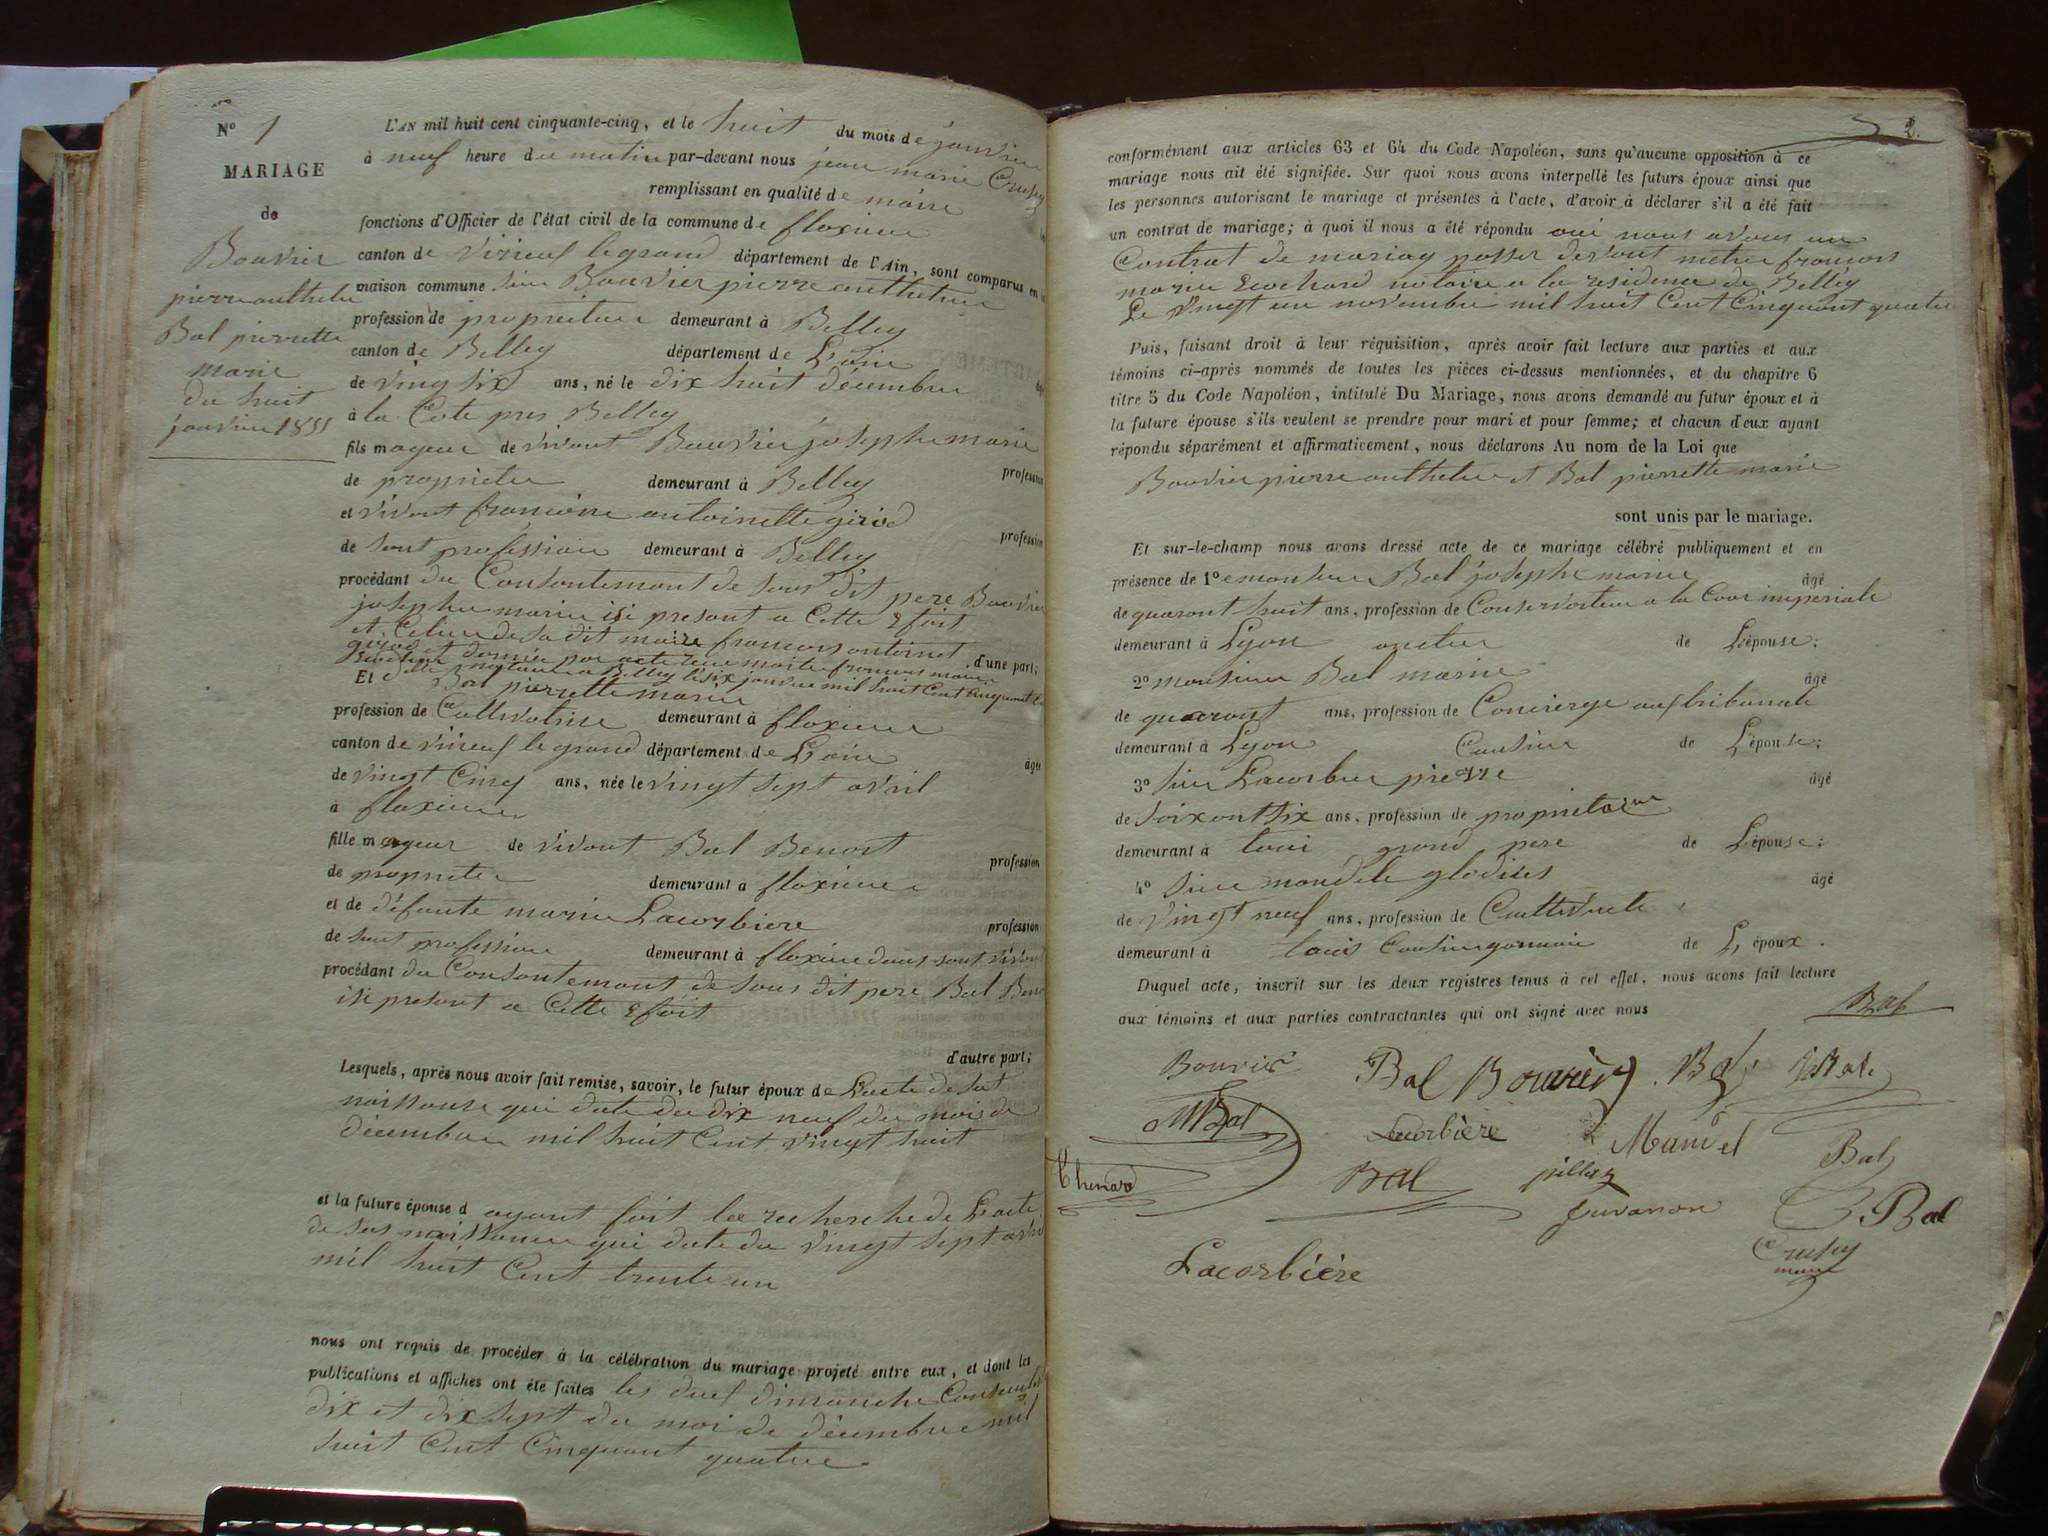 N° 1
MARIAGE
de
Bouvier
pierre anthelme
Bal pierrette
marie
du huit
janvier 1855
L'AN mil huit cent cinquante-cinq, et le huit du mois de janvier
à neuf heure du matin par-devant nous jean marie Crussy
remplissant en qualité de maire
fonctions d'Officier de l'état civil de la commune de floxieu
canton de virieu le grand département de l'Ain, sont comparus en la
maison commune sieur Bouvier pierre anthelme
profession de propriétaire demeurant à Belley
canton de Belley département de L'ain
de ving six ans, né le dix huit décembre
à la Cote pres Belley
fils mageur de vivant Bouvier josephe marie
profession
de proprietere demeurant à Belley
et vivant francoise antoinette girod
profession
de sent profession demeurant à Belley
procédant du Consontemant de sous dit pere Bouvier
josephe marie isi presant a Cette Efait
et Celui de sa dit maire francois antoinet
girod et donnée par acte
Belley le six janvier mil huit Cent Cinquante
, d'une part;
Et Bal pierrette marie
profession de Culltivatrice demeurant à floxieu
canton de virieu le grand département de L'ain
âgée
de vingt Cinq ans, née le vingt sept avril
à floxieu
fille mageur de vivant Bal Benoit
profession
de proprietere demeurant à floxieu
et de défunte marie Lacorbiere
profession
de sent profession demeurant à floxieu dans sont vivant
procédant du Consontemant de sous dit pere Bal Beno
isi presant a Cette Efait
d'autre part;
Lesquels, après nous avoir fait remise, savoir, le futur époux de L'acte de sat
naissance qui date du dix neuf du mois de
décembre mil huit Cent vingt huit
et la future épouse d ayant fait lee recherche de L'acte
de sas naissance qui date du vingt sept avri
mil huit Cent trente un
nous ont requis de procéder à la célébration du mariage projeté entre eux, et dont les
publications et affiches ont été faites les deuf dimanche Consecutif
dix et dix sept du moi de décembre mil
huit Cent Cinquant quatre
2.
conformément aux articles 63 et 64 du Code Napoléon, sans qu'aucune opposition à ce
mariage nous ait été signifiée. Sur quoi nous avons interpellé les futurs époux ainsi que
les personnes autorisant le mariage et présentes à l'acte, d'avoir à déclarer s'il a été fait
un contrat de mariage; à quoi il nous a été répondu oui nous avons un
Contrat de mariag passer devant metre francois
marie notaire a la residence de Belley
Le vingt un novembre mil huit Cent Cinquant quatre
Puis, faisant droit à leur réquisition, après avoir fait lecture aux parties et aux
témoins ci-après nommés de toutes les pièces ci-dessus mentionnées, et du chapitre 6
titre 5 du Code Napoléon, intitulé Du Mariage, nous avons demandé au futur époux et à
la future épouse s'ils veulent se prendre pour mari et pour femme; et chacun d'eux ayant
répondu séparément et affirmativement, nous déclarons Au nom de la Loi que
Bouvier pierre anthelme et Bal pierrette marie
sont unis par le mariage.
Et sur-le-champ nous avons dressé acte de ce mariage célébré publiquement et en
présence de 1° monsieur Bal josephe marie âgé
de quarant huit ans, profession de Conservateur a la Cour imperiale
demeurant à Lyon oncle de L'épouse;
2° monsieur Bal marie âgé
de quarant ans, profession de Concierge auf tribunale
demeurant à Lyon Cousin de L'épouse;
3° sieur Lacorbiere pierre âgé
de soixant six ans, profession de proprietaire
demeurant à grand pere de L'épouse;
4° sieur mandel glodius âgé
de vingt neuf ans, profession de Culltivateur
demeurant à Cousin germain de L'époux.
Duquel acte, inscrit sur les deux registres tenus à cet effet, nous avons fait lecture
aux témoins et aux parties contractantes qui ont signé avec nous Bal
Bouvier Bal Bouvier Bal Bal
MBal Lacorbière Mandel Bal
Thenard Bal Juvanon Bal
Lacorbière
Crussy
maire